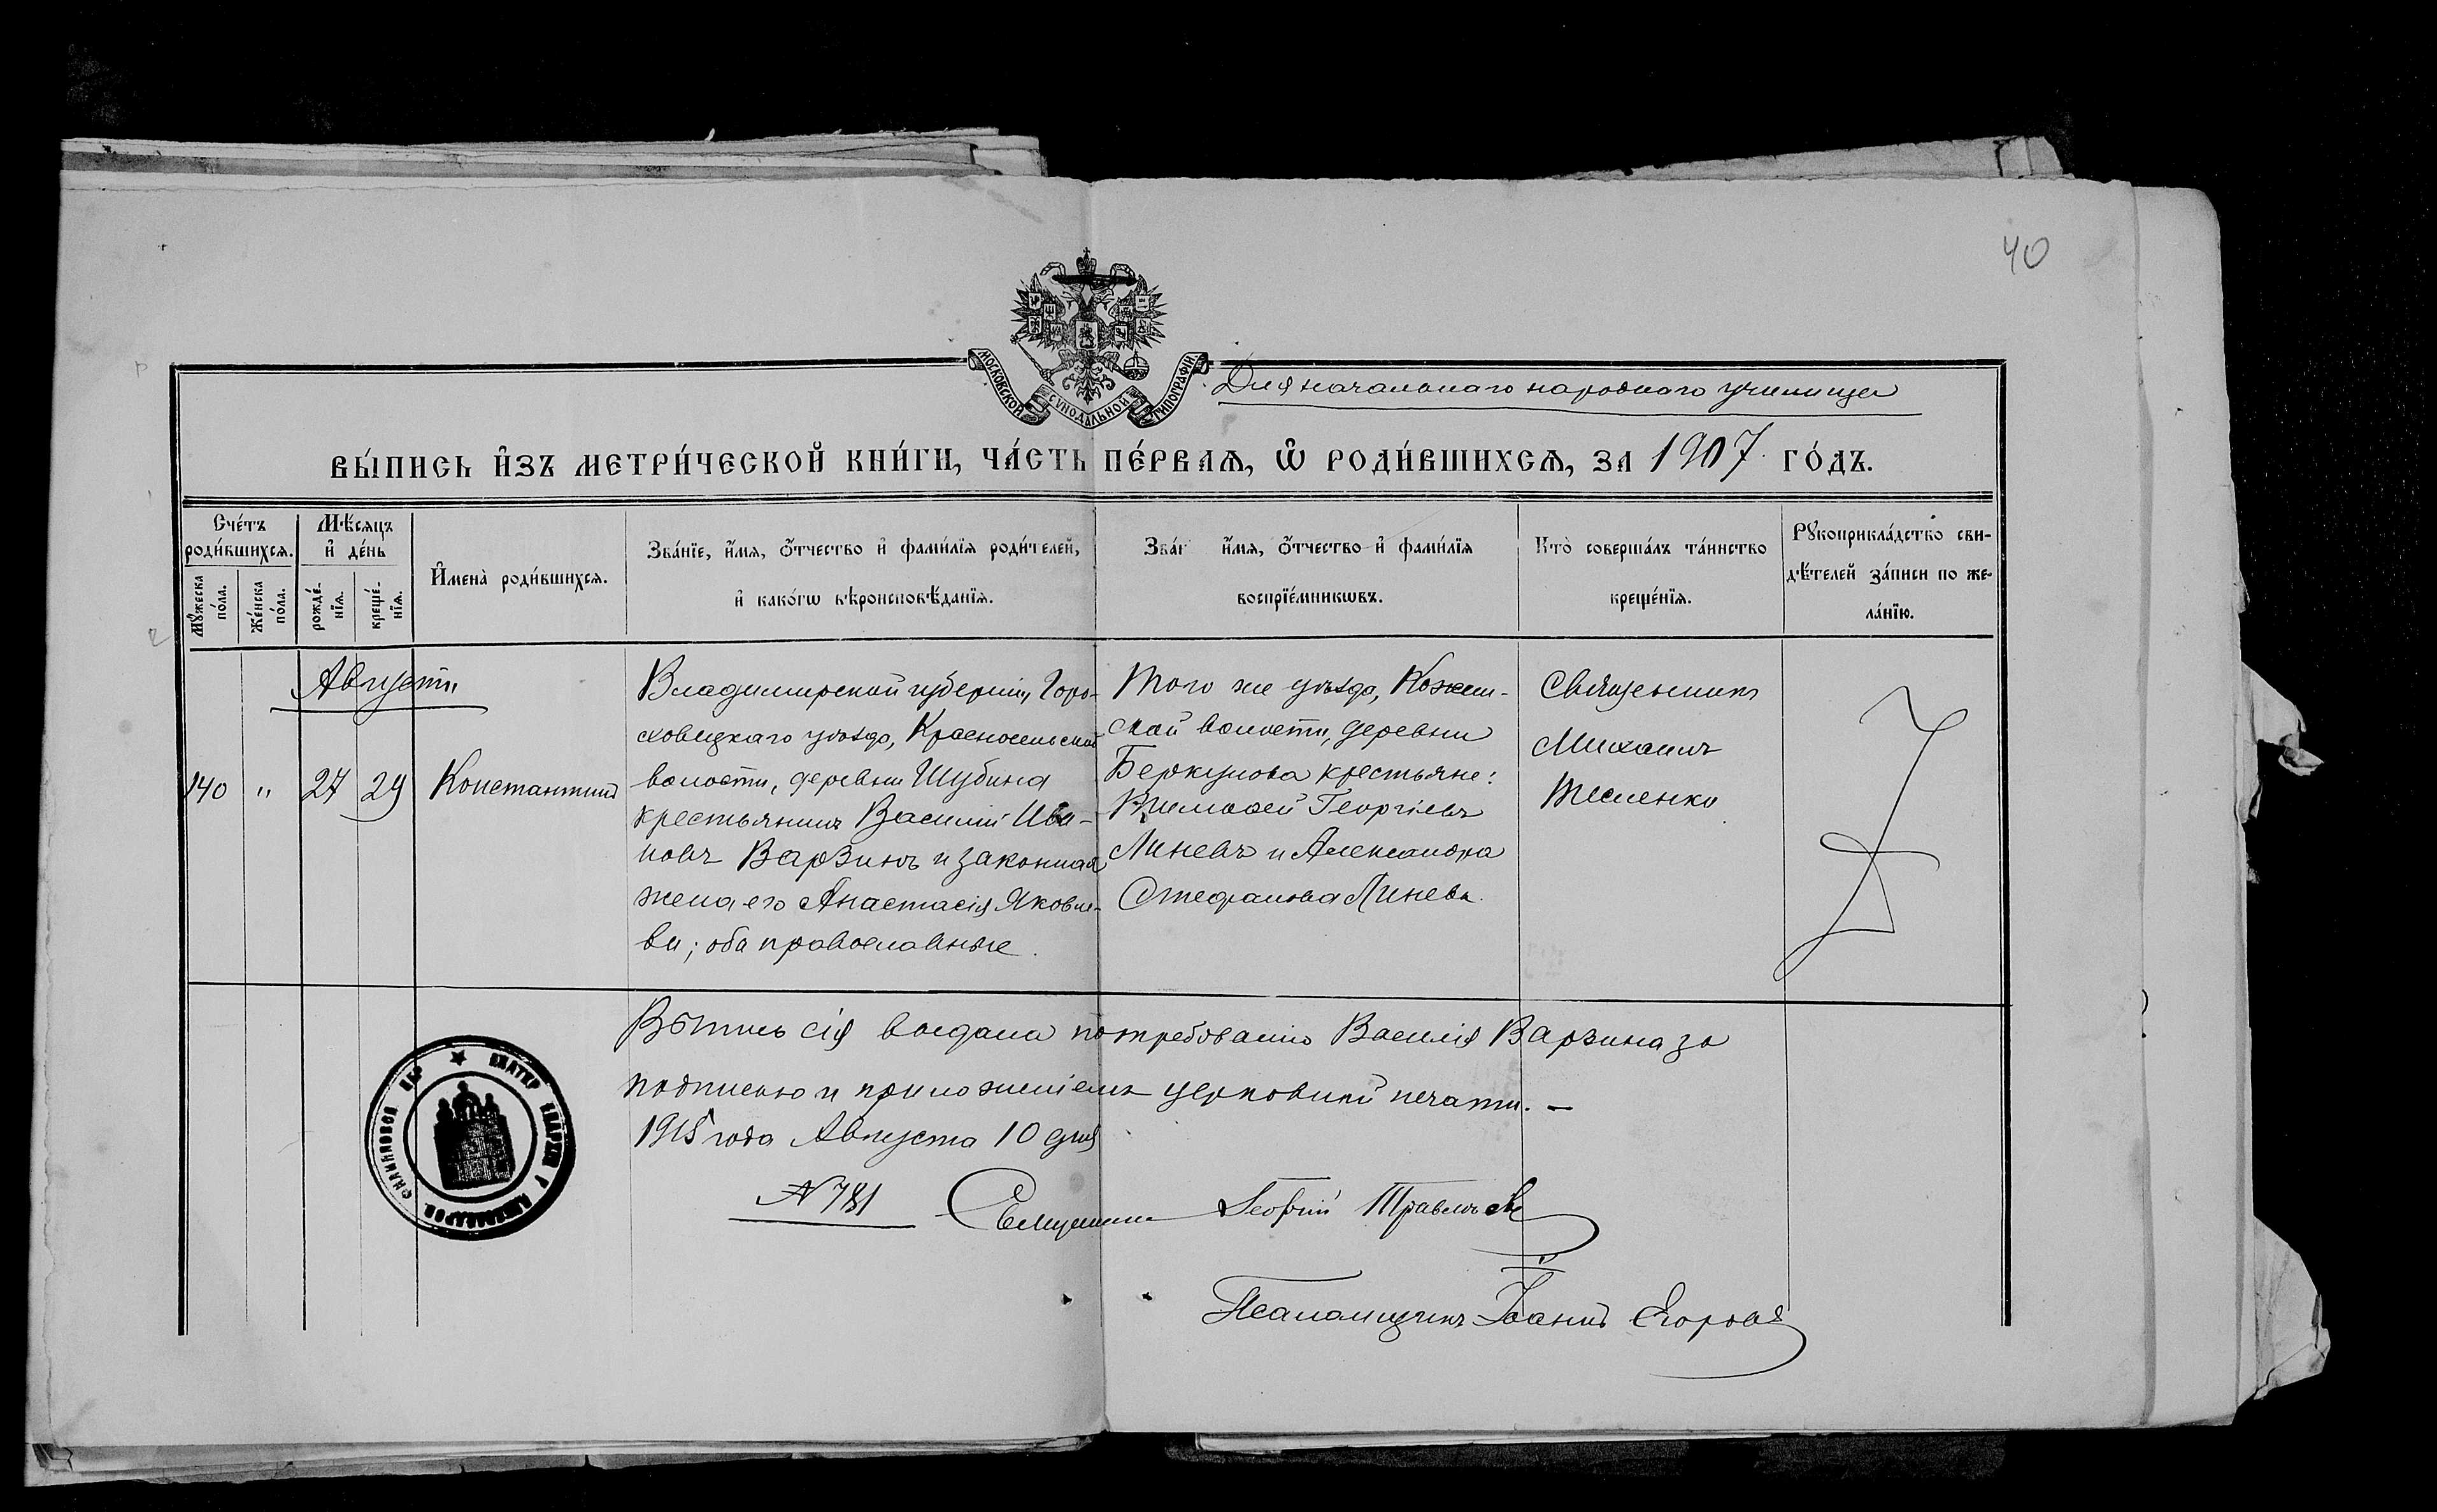 40
МОСКОВСКОЙ СѴНОДАЛЬНОЙ ТИПОГРАФІИ.
Для начальнаго народнаго училища
ВЫ́ПИСЬ И҆ЗЪ МЕТРИ́ЧЕСКОЙ КНИ́ГИ, ЧА́СТЬ ПЕ́РВАѦ, Ѡ҆ РОДИ́ВШИХСѦ, ЗА 1907 ГО́ДЪ.
Сче́тъ роди́вшихсѧ.
Мꙋ́жеска по́ла.
Же́нска по́ла.
Мѣ́сѧцъ и҆ де́нь
рожде́нїѧ.
креще́нїѧ.
И҆мена̀ роди́вшихсѧ.
Зва́нїе, и҆́мѧ, ѻ҆́тчество и҆ фами́лїѧ роди́телей,
и҆ како́гѡ вѣроисповѣ́данїѧ.
Зва́н и҆́мѧ, ѻ҆́тчество и҆ фами́лїѧ
воспрїе́мникѡвъ.
Кто̀ соверша́лъ та́инство
креще́нїѧ.
Рꙋкоприкла́дство сви-
дѣ́телей за́писи по же-
ла́нїю.
Августъ
140 " 27 29 Константинъ
Владимирской губерніи, Горо-
ховецкаго уѣзда, Красносельской
волости, деревни Шубина
крестьянинъ Василій Ива-
новъ Варзинъ и законная
жена его Анастасія Яковле-
ва; оба православные.
Того же уѣзда,
ской волости, деревни
Беркунова крестьяне:
Тимофей Георгіевъ
Линевъ и Александра
Стефанова Линева.
Священникъ
Михаилъ
Тесленко
Выпись сія выдана по требованію Василія Варзина за
подписью и приложеніемъ церковной печати. —
1915 года Августа 10 дня
№ 781 Священникъ Георгій
Псаломщикъ Іоаннъ Егоровъ